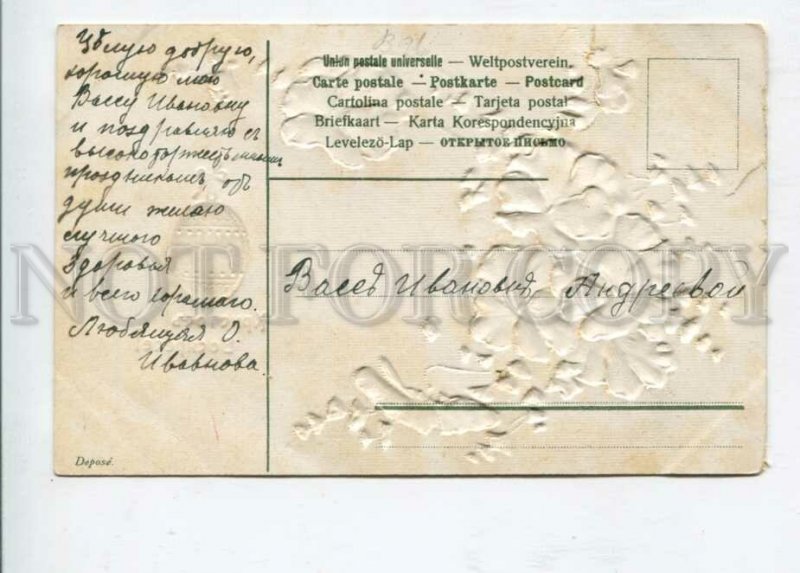 Цѣлую добрую,
хорошую мою
Вассу Ивановну
и поздравляю съ
высокоторжественнымъ
праздникомъ, отъ
души желаю
лучшого
Здоровья
и всего хорошаго.
Любящая О.
Иванова.
Deposé.
В 91
Union postale universelle — Weltpostverein.
Carte postale — Postkarte — Postcard
Cartolina postale — Tarjeta postal
Briefkaart — Karta Korespondencyjna
Levelező-Lap — ОТКРЫТОЕ ПИСЬМО
Вассѣ Ивановнѣ Андреевой
NOT FOR COPY